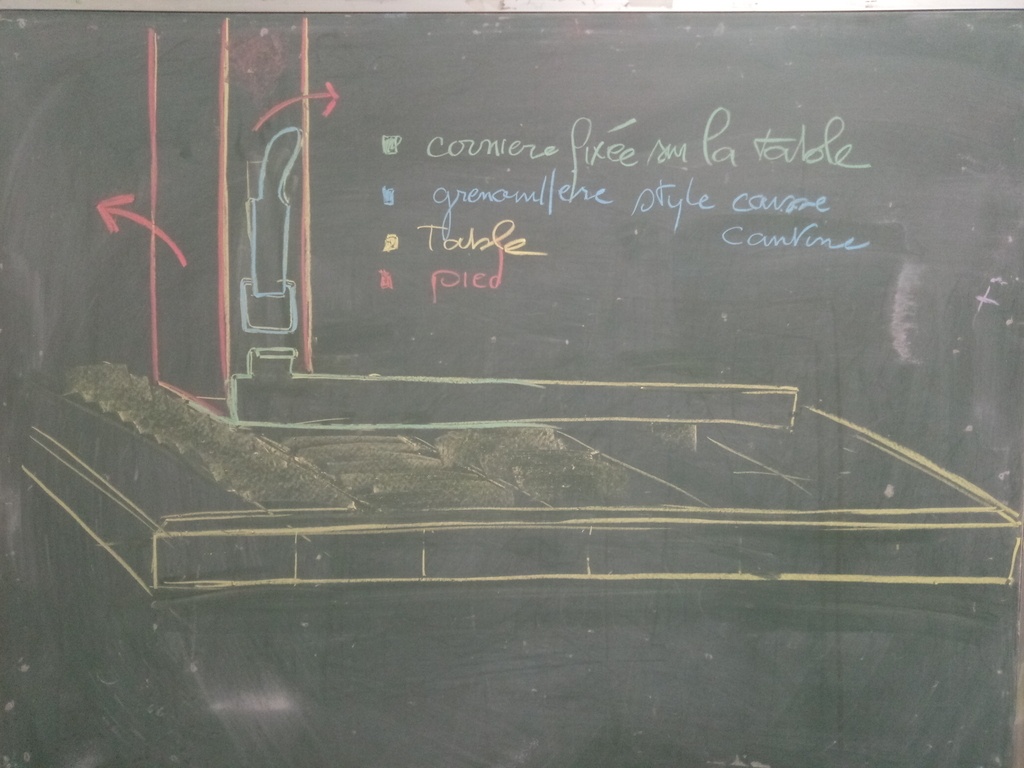 corniere fixée sur la table
grenouillère style caisse
cantine
Table
pied